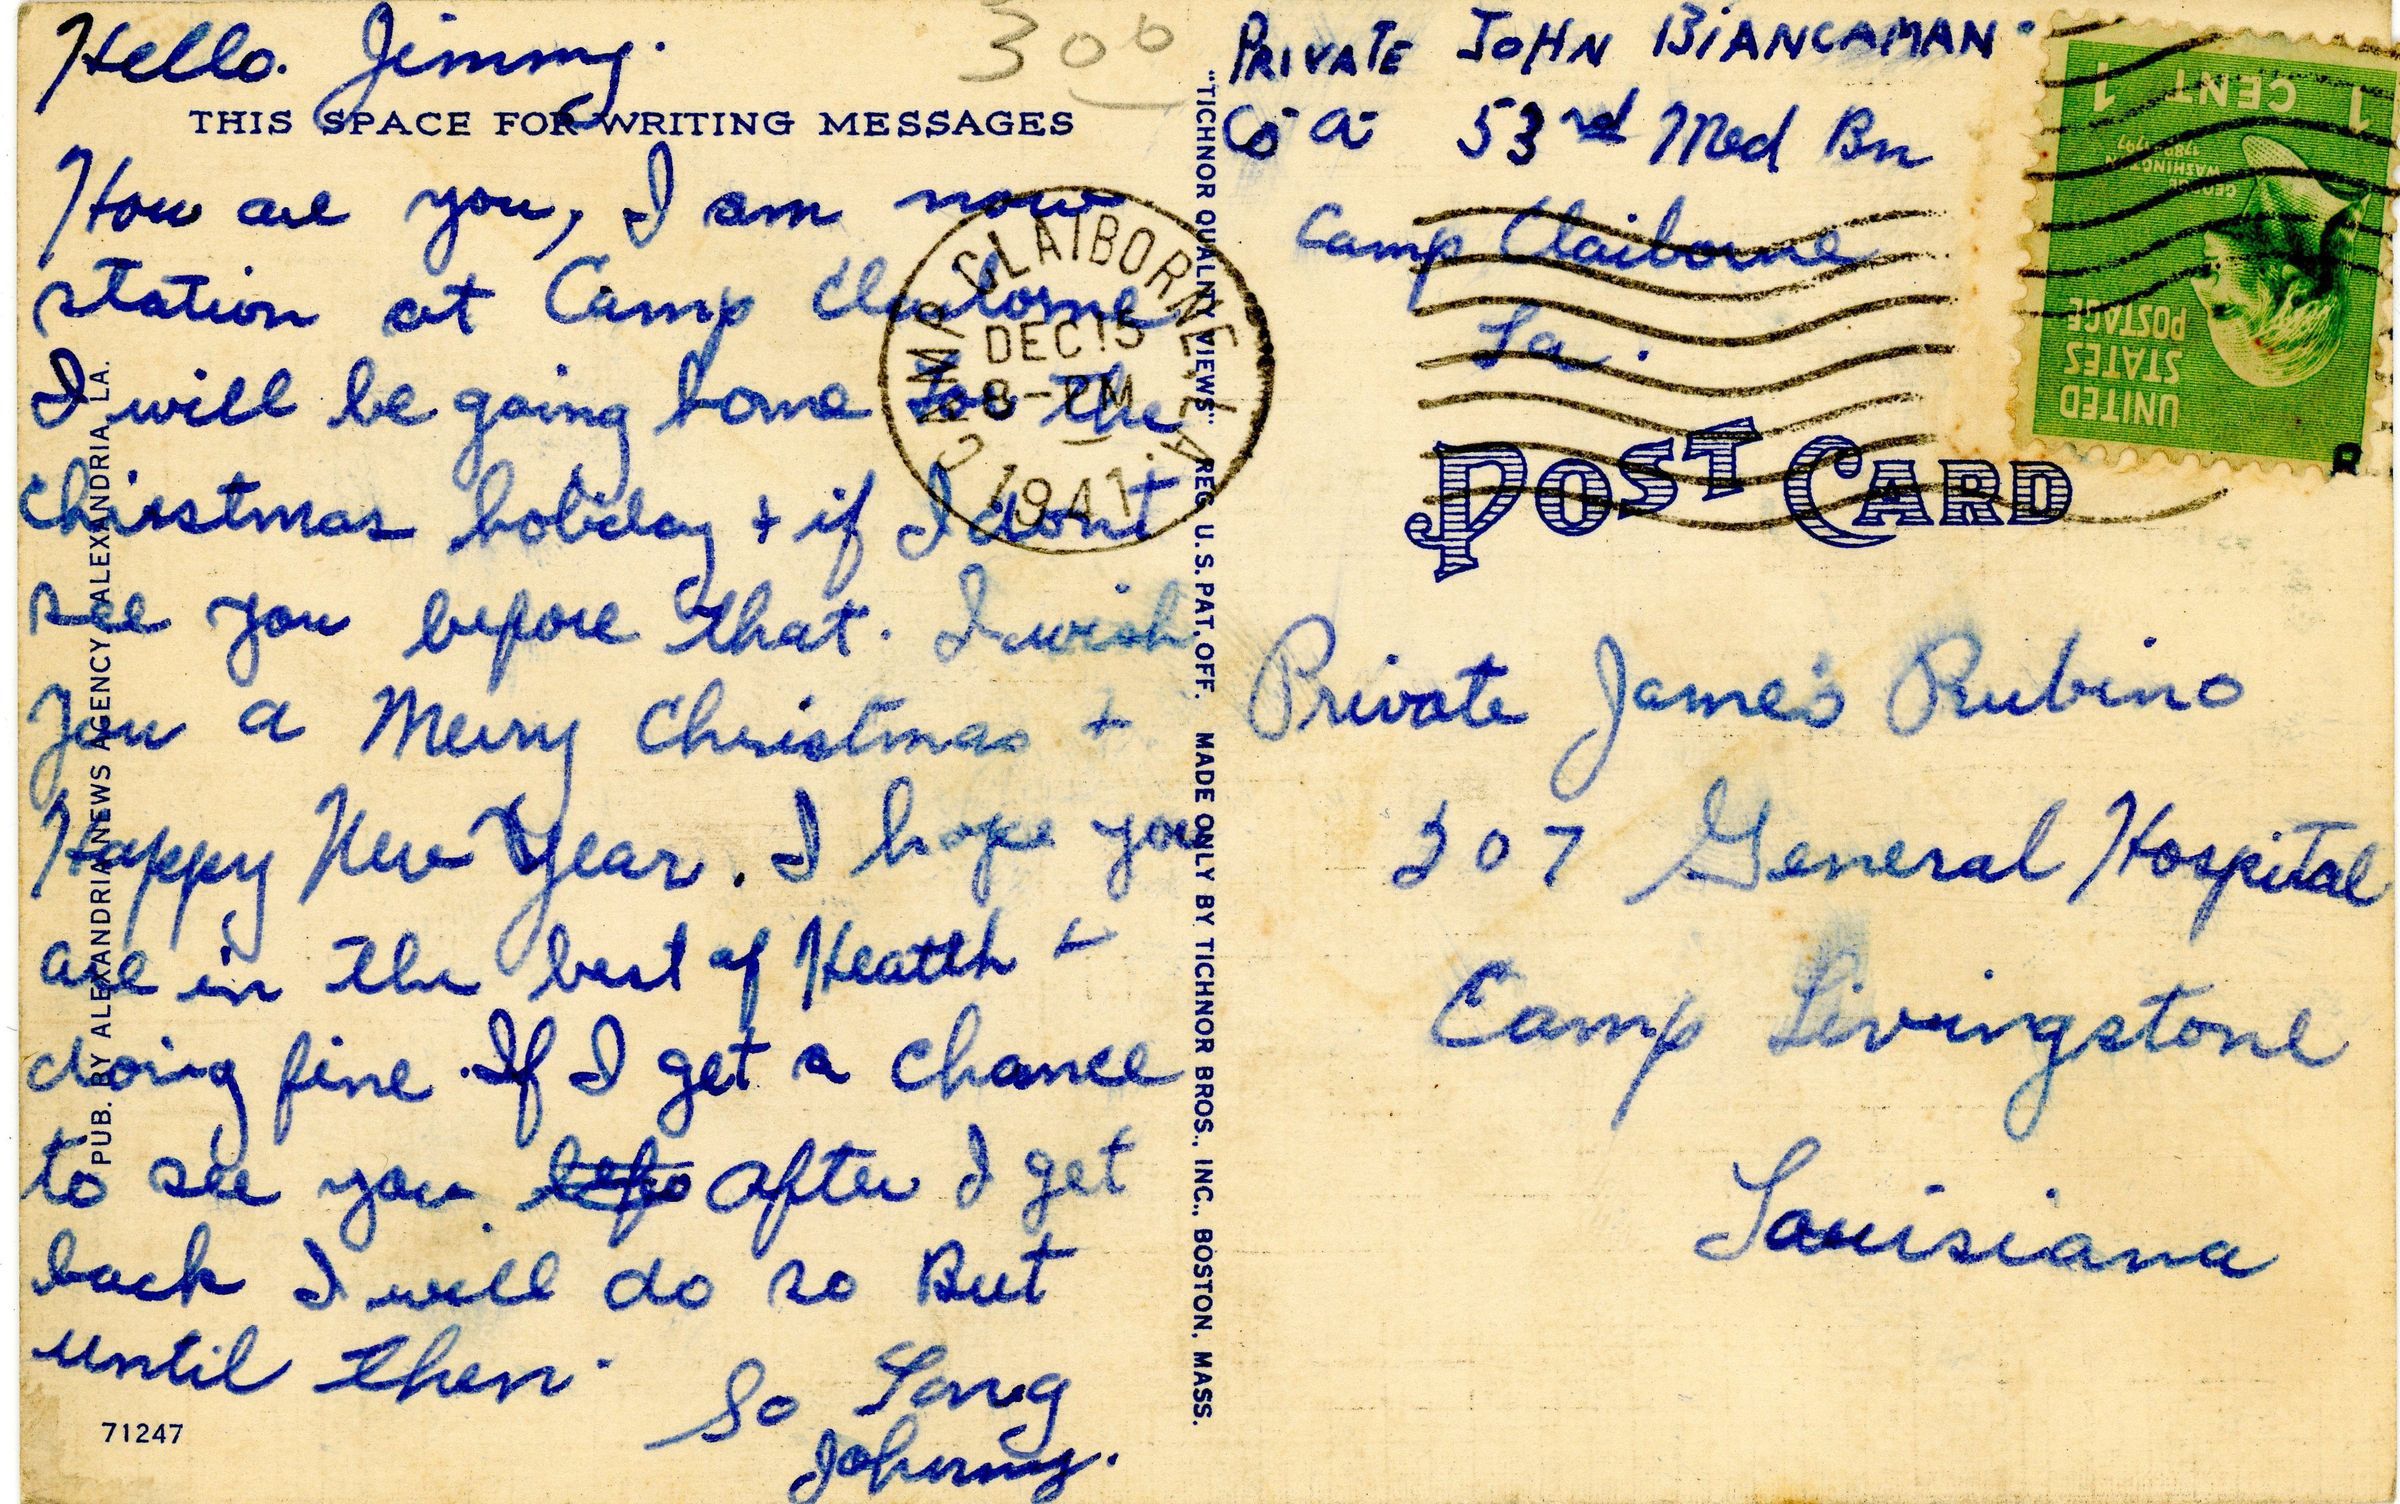 Hello. Jimmy.
THIS SPACE FOR WRITING MESSAGES
How are you, I am now
station at Camp Claiborne
I will be going home for the
Christmas holiday + if I dont
see you before that. I wish
You a Merry Christmas +
Happy New Year. I hope you
are in the best of Heatlh +
doing fine. If I get a chance
to see you befo after I get
back I will do so But
until then.
So Long
Johnny.
71247
PUB. BY ALEXANDRIA NEWS AGENCY, ALEXANDRIA, LA.
300
CAMP CLAIBORNE, LA.
DEC 15
8-PM
1941
"TICHNOR QUALITY VIEWS" REG. U.S. PAT. OFF. MADE ONLY BY TICHNOR BROS., INC., BOSTON, MASS.
PRIVATE JOHN BIANCAMAN.
Co A 53rd Med Bn
Camp Claiborne
La.
POST CARD
Private James Rubino
207 General Hospital
Camp Livingstone
Louisiana
1 CENT 1
GEORGE
WASHINGTON
1789-1797
UNITED
STATES
POSTAGE